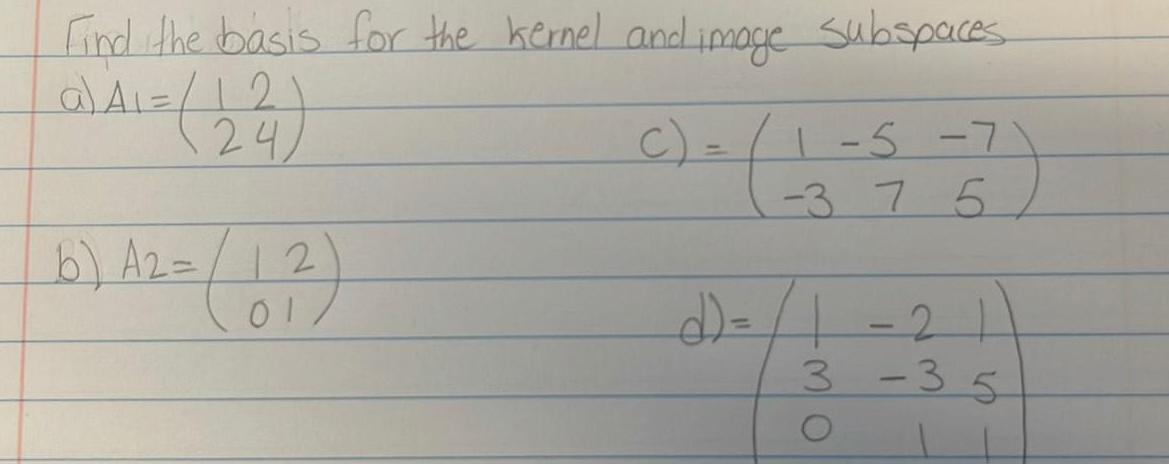 Find the basis for the kernel and image subspaces
a) A1 = ( 1 2
2 4 )
b) A2 = ( 1 2
0 1 )
c) = ( 1 -5 -7
-3 7 5 )
d) = ( 1 -2 1
3 -3 5
0 1 1